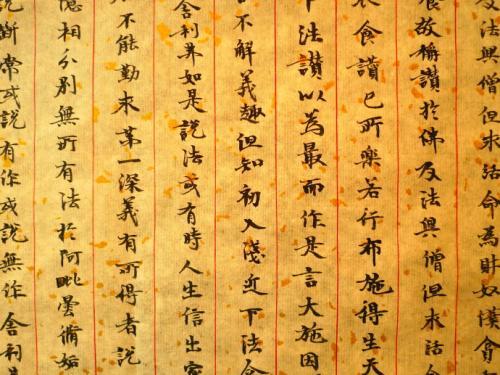 及法與僧但求活命為財奴僕
故稱讚於佛及法與僧但求活
衣食讚已所樂若行布施得生天
下法讚以為最而作是言大施因
不解義趣但知初入淺近下法
舍利弗如是說法或有時人生信出家
不能勤求第一深義有所得者說
憶相分別無所有法於阿毗曇脩妬
說斷常或說有作或說無作舍利